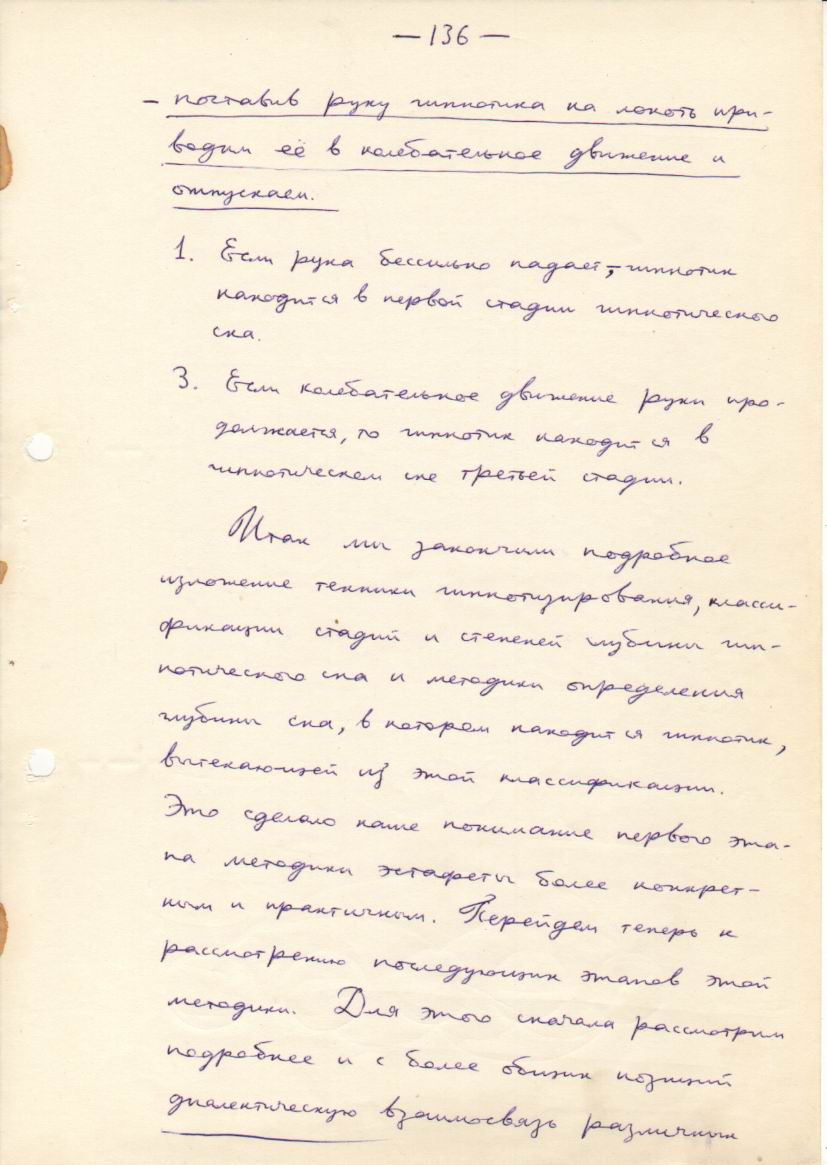 — 136 —
– поставив руку гипнотика на локоть при-
водим её в колебательное движение и
отпускаем.
1. Если рука бессильно падает, – гипнотик
находится в первой стадии гипнотического
сна.
3. Если колебательное движение руки про-
должается, то гипнотик находится в
гипнотическом сне третьей стадии.
Итак мы закончили подробное
изложение техники гипнотизирования, класси-
фикации стадий и степеней глубины гип-
нотического сна и методики определения
глубины сна, в котором находится гипнотик,
вытекающей из этой классификации.
Это сделало наше понимание первого эта-
па методики эстафеты более конкрет-
ным и практичным. Перейдем теперь к
рассмотрению последующих этапов этой
методики. Для этого сначала рассмотрим
подробнее и с более общих позиций
диалектическую взаимосвязь различных